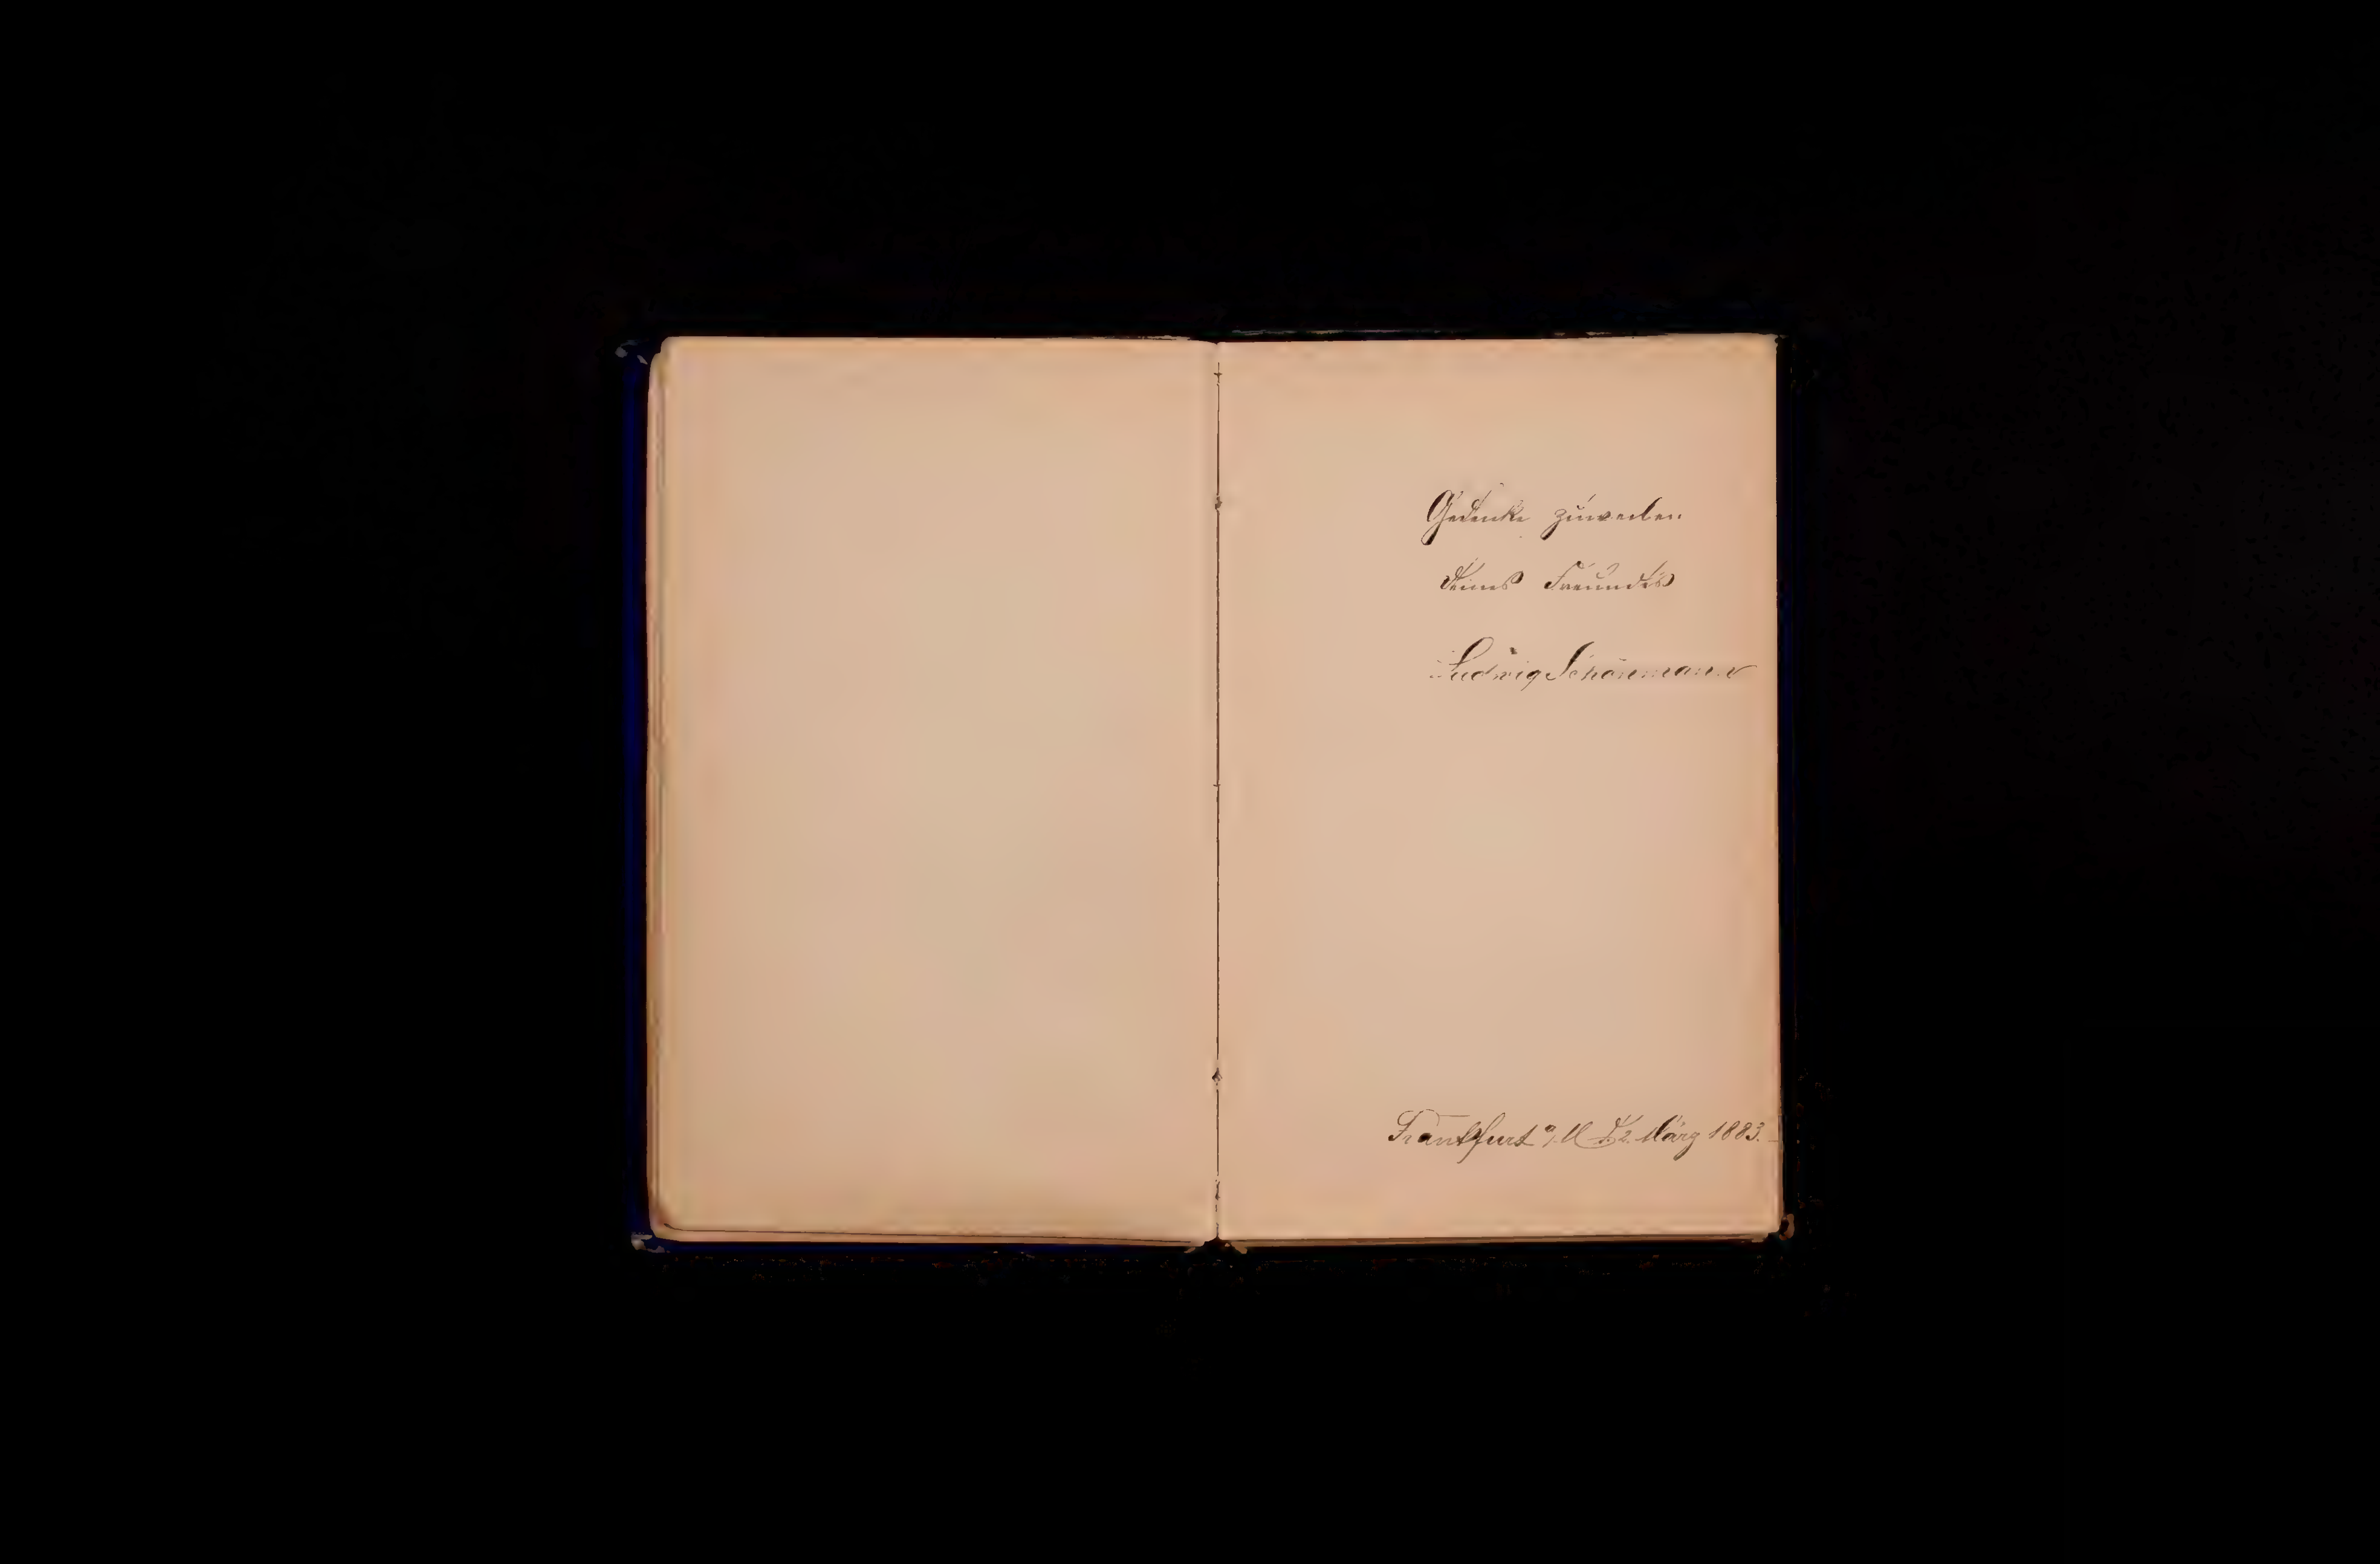 Gedenke zuweilen
Deines Freundes
Ludwig Schönmann
Frankfurt a/M d. 2. März 1883.